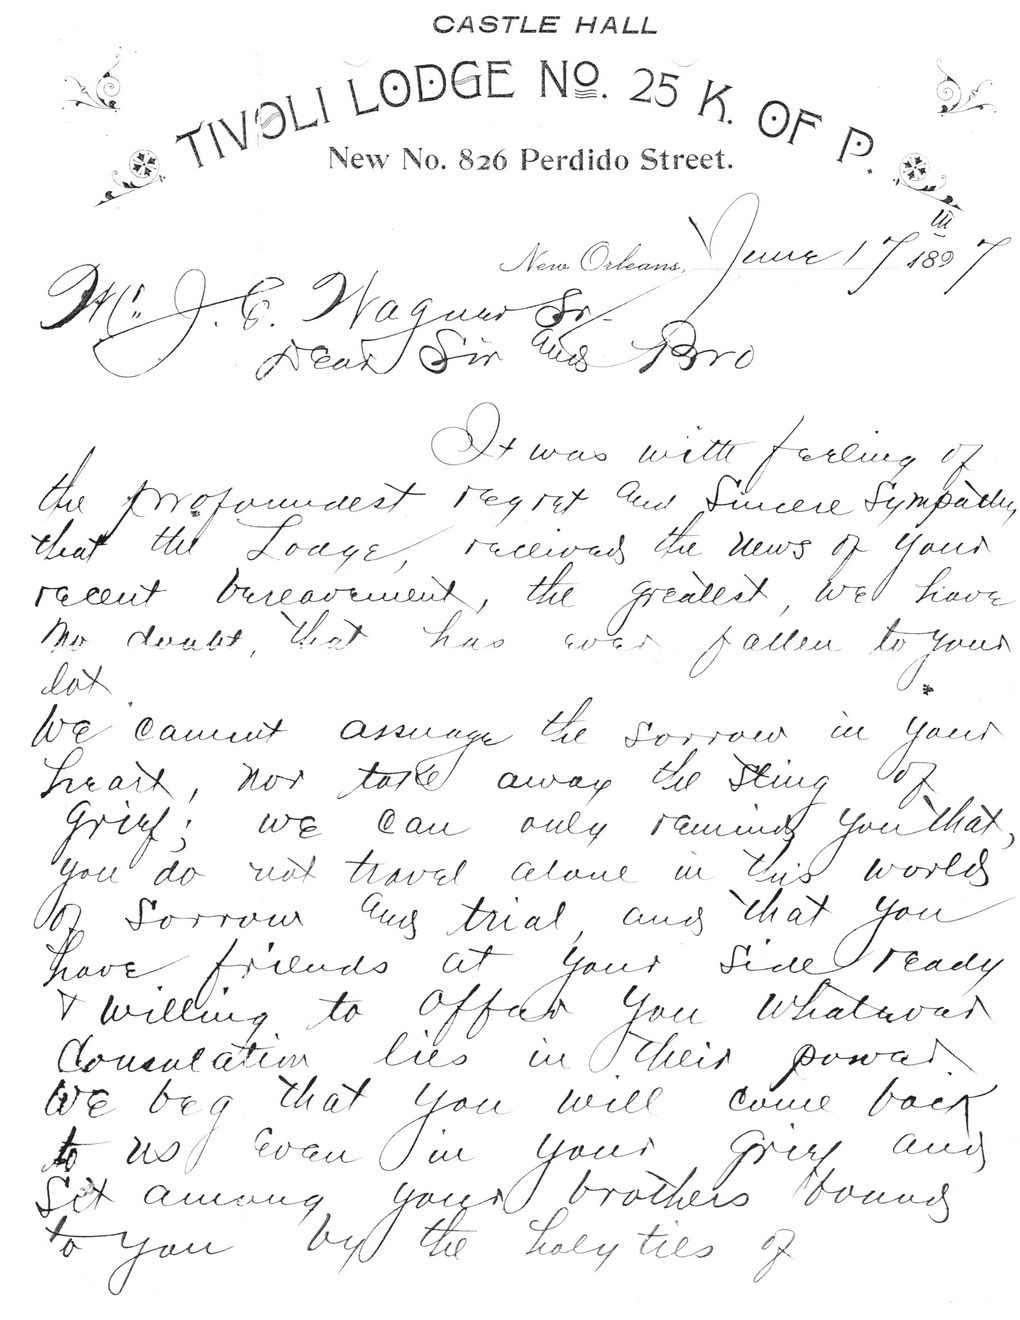 CASTLE HALL
TIVOLI LODGE No. 25 K. OF P.
New No. 826 Perdido Street.
New Orleans, June 17th 1897
Mr. J. E. Wagner Sr.
Dear Sir and Bro
It was with feeling of
the profoundest regret and Sincere Sympathy
that the Lodge, received the news of your
recent bereavement, the greatest, we have
no doubt, that has ever fallen to your
lot
We cannot assuage the sorrow in your
heart, nor take away the sting of
grief; we can only remind you that,
you do not travel alone in this world
of sorrow and trial, and that you
have friends at your side ready
& willing to offer you whatever
Consolation lies in their power.
We beg that you will come back
to us even in your grief and
Sit among your brothers bound
to you by the holy ties of